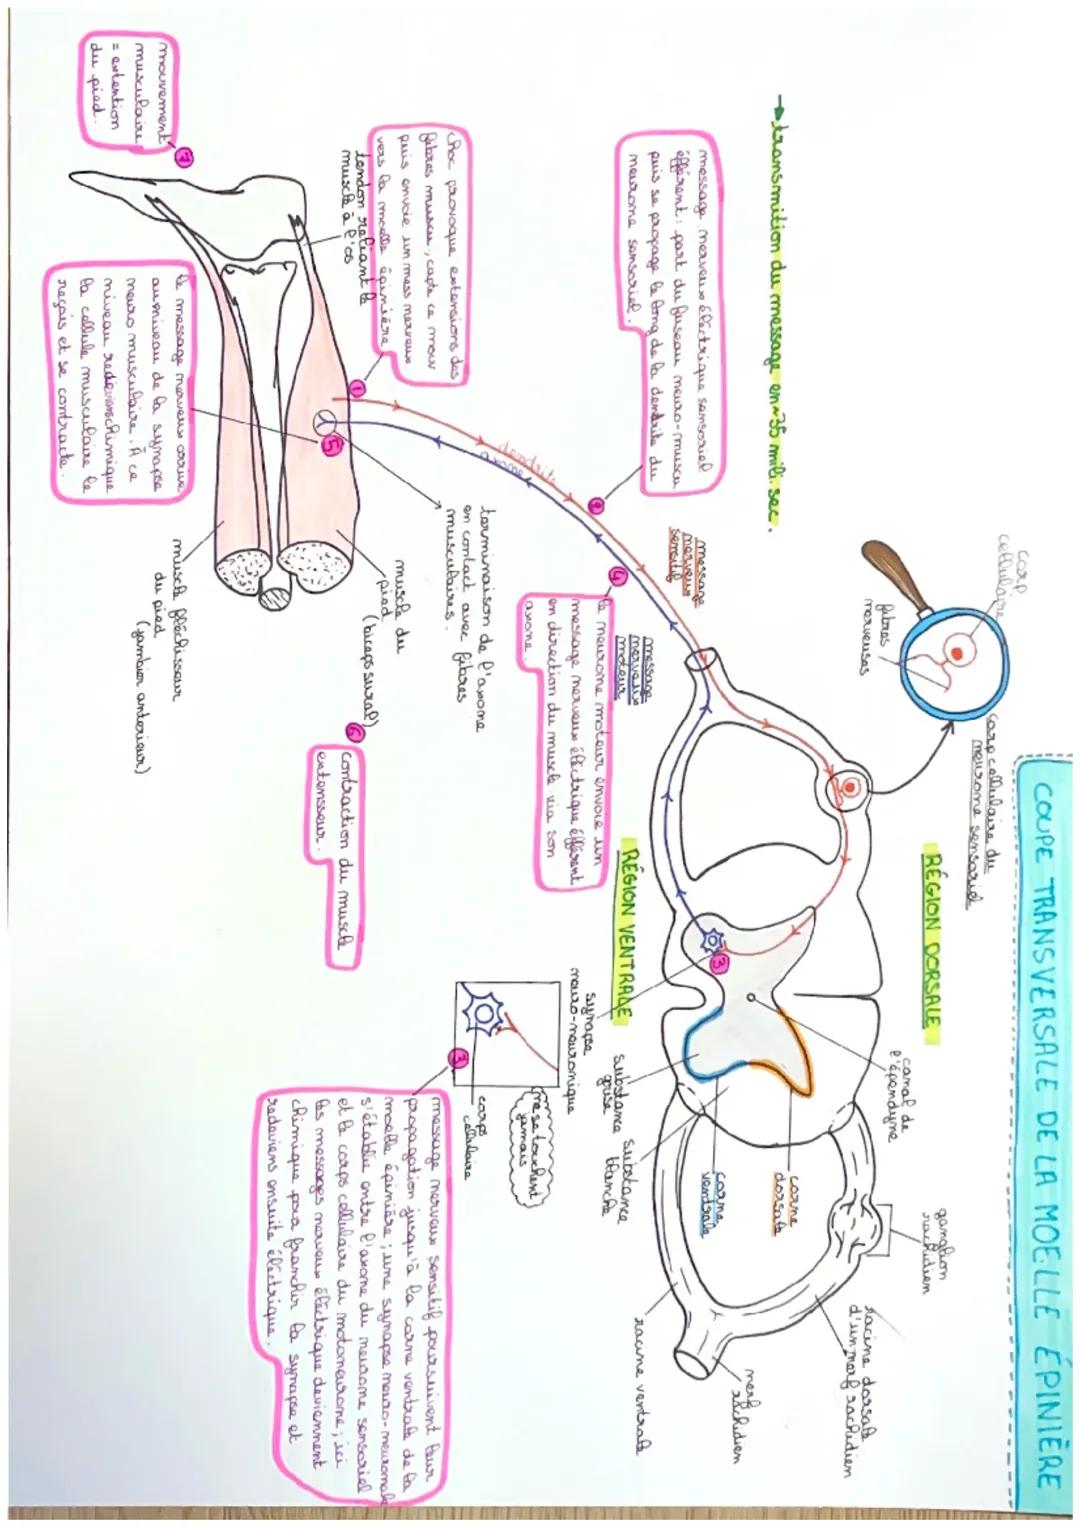 COUPE TRANSVERSALE DE LA MOELLE ÉPINIÈRE
→ transmition du message en ≈ 35 mili. sec.
corp
cellulaire
fibres
nerveuses
corp cellulaire du
neurone sensoriel
RÉGION DORSALE
canal de
l'épendyme
ganglion
rachidien
racine dorsale
d'un nerf rachidien
corne
dorsale
corne
ventrale
nerf
rachidien
racine ventrale
substance
grise
substance
blanche
RÉGION VENTRALE
synapse
neuro-neuronique
message nerveux éléctrique sensoriel
éfférent: part du fuseau neuro-muscu
puis se propage le long de la dendrite du
neurone sensoriel.
message
nerveux
sensitif
message
nerveux
moteur
dendrite
axone
2
4
le neurone moteur envoie un
message nerveux éléctrique éfférent
en direction du muscle via son
axone.
3
choc provoque extensions des
fibres muscu, capte ce mouv
puis envoie un mess nerveux
vers la moelle épinière
1
tendon reliant le
muscle à l'os
5
terminaison de l'axone
en contact avec fibres
musculaires.
muscle du
pied
(biceps sural)
muscle fléchisseur
du pied
(jambier anterieur)
6
contraction du muscle
extensseur.
mouvement
musculaire
= extention
du pied.
7
le message nerveux arrive
au niveau de la synapse
neuro musculaire. À ce
niveau redeviens chimique
la cellule musculaire le
reçois et se contracte.
ne se touchent
jamais
corps
cellulaire
3
message nerveux sensitif poursuivent leur
propagation jusqu'à la corne ventrale de la
moelle épinière ; une synapse neuro-neuronale
s'établie entre l'axone du neurone sensoriel
et le corps cellulaire du motoneurone ; ici
les messages nerveux éléctrique deviennent
chimique pour franchir la synapse et
redeviens ensuite éléctrique.